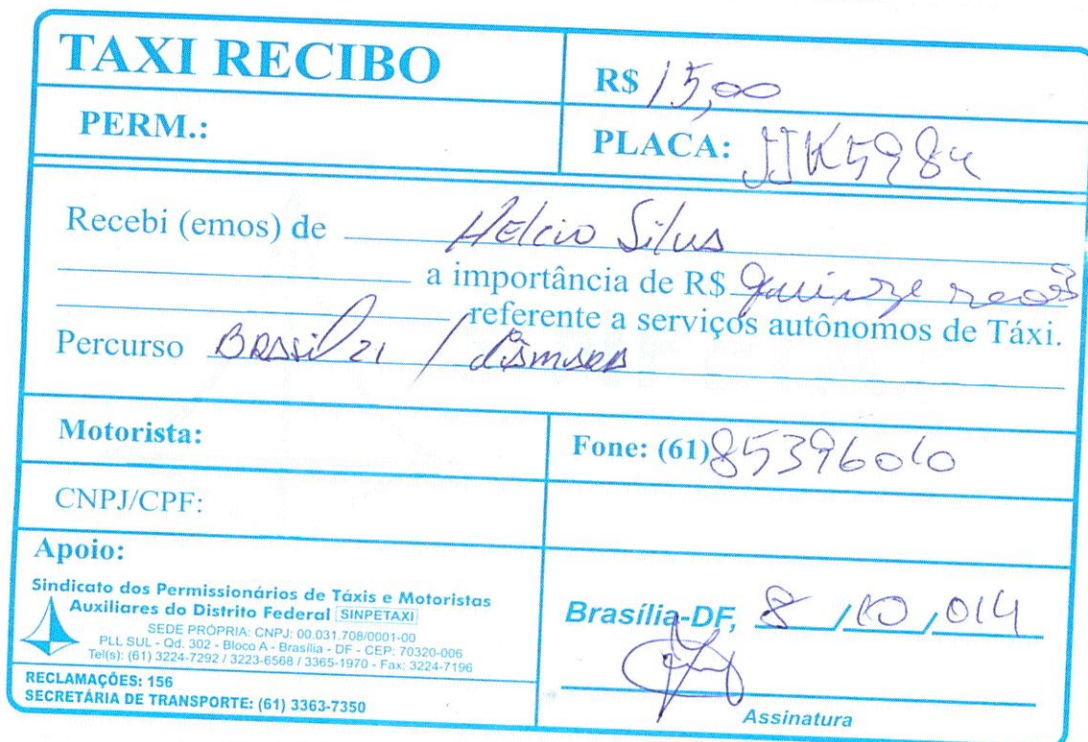 TAXI RECIBO
R$ 15,00
PERM.:
PLACA: JJK5984
Recebi (emos) de Helcio Silva
a importância de R$ quinze reais
referente a serviços autônomos de Táxi.
Percurso BRASil 21 / Câmara
Motorista:
Fone: (61) 85396010
CNPJ/CPF:
Apoio:
Sindicato dos Permissionários de Táxis e Motoristas
Auxiliares do Distrito Federal SINPETAXI
SEDE PRÓPRIA: CNPJ: 00.031.708/0001-00
PLL SUL - Qd. 302 - Bloco A - Brasília - DF - CEP: 70320-006
Tel(s): (61) 3224-7292 / 3223-6568 / 3365-1970 - Fax: 3224-7196
RECLAMAÇÕES: 156
SECRETÁRIA DE TRANSPORTE: (61) 3363-7350
Brasília-DF, 8 /10 /014
Assinatura